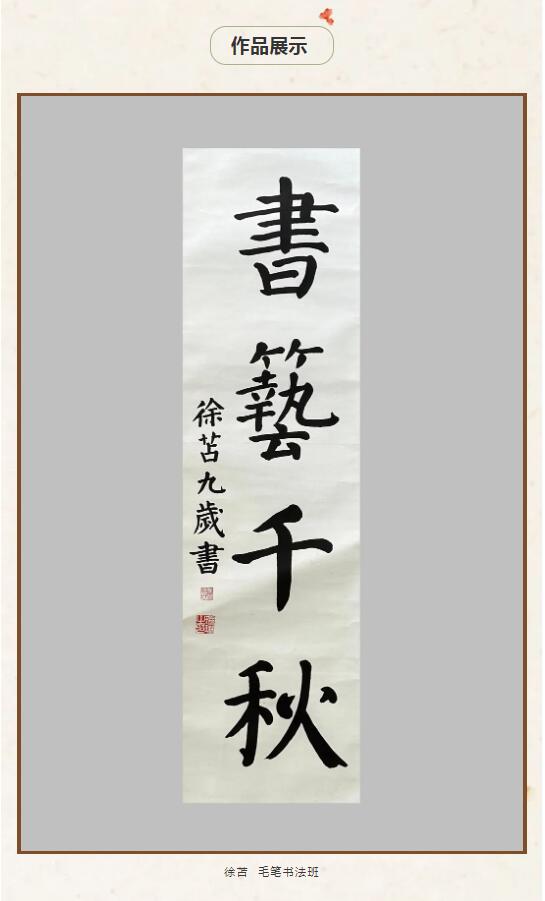 作品展示
書藝千秋
徐苫九歲書
徐苫 毛笔书法班